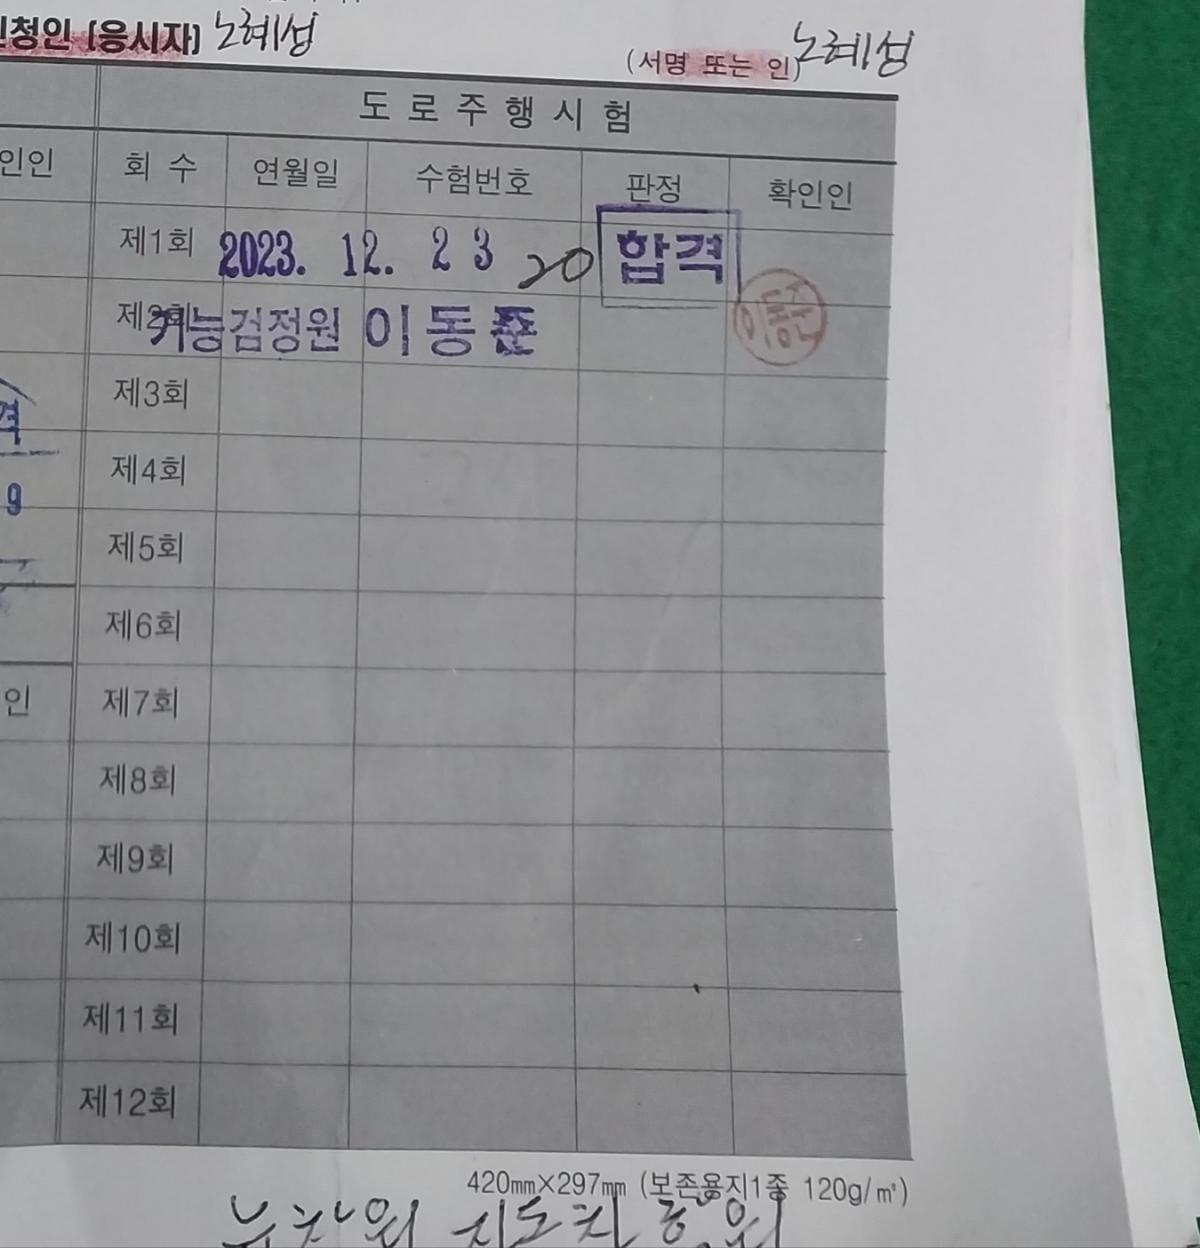 신청인 (응시자) 노혜성
(서명 또는 인) 노혜성
도로주행시험
인인 회 수 연월일 수험번호 판정 확인인
제1회 2023. 12. 23 20 합격
제2회 기능검정원 이동준
제3회
격
제4회
9
제5회
제6회
인 제7회
제8회
제9회
제10회
제11회
제12회
420㎜×297㎜ (보존용지1종 120g/㎡)